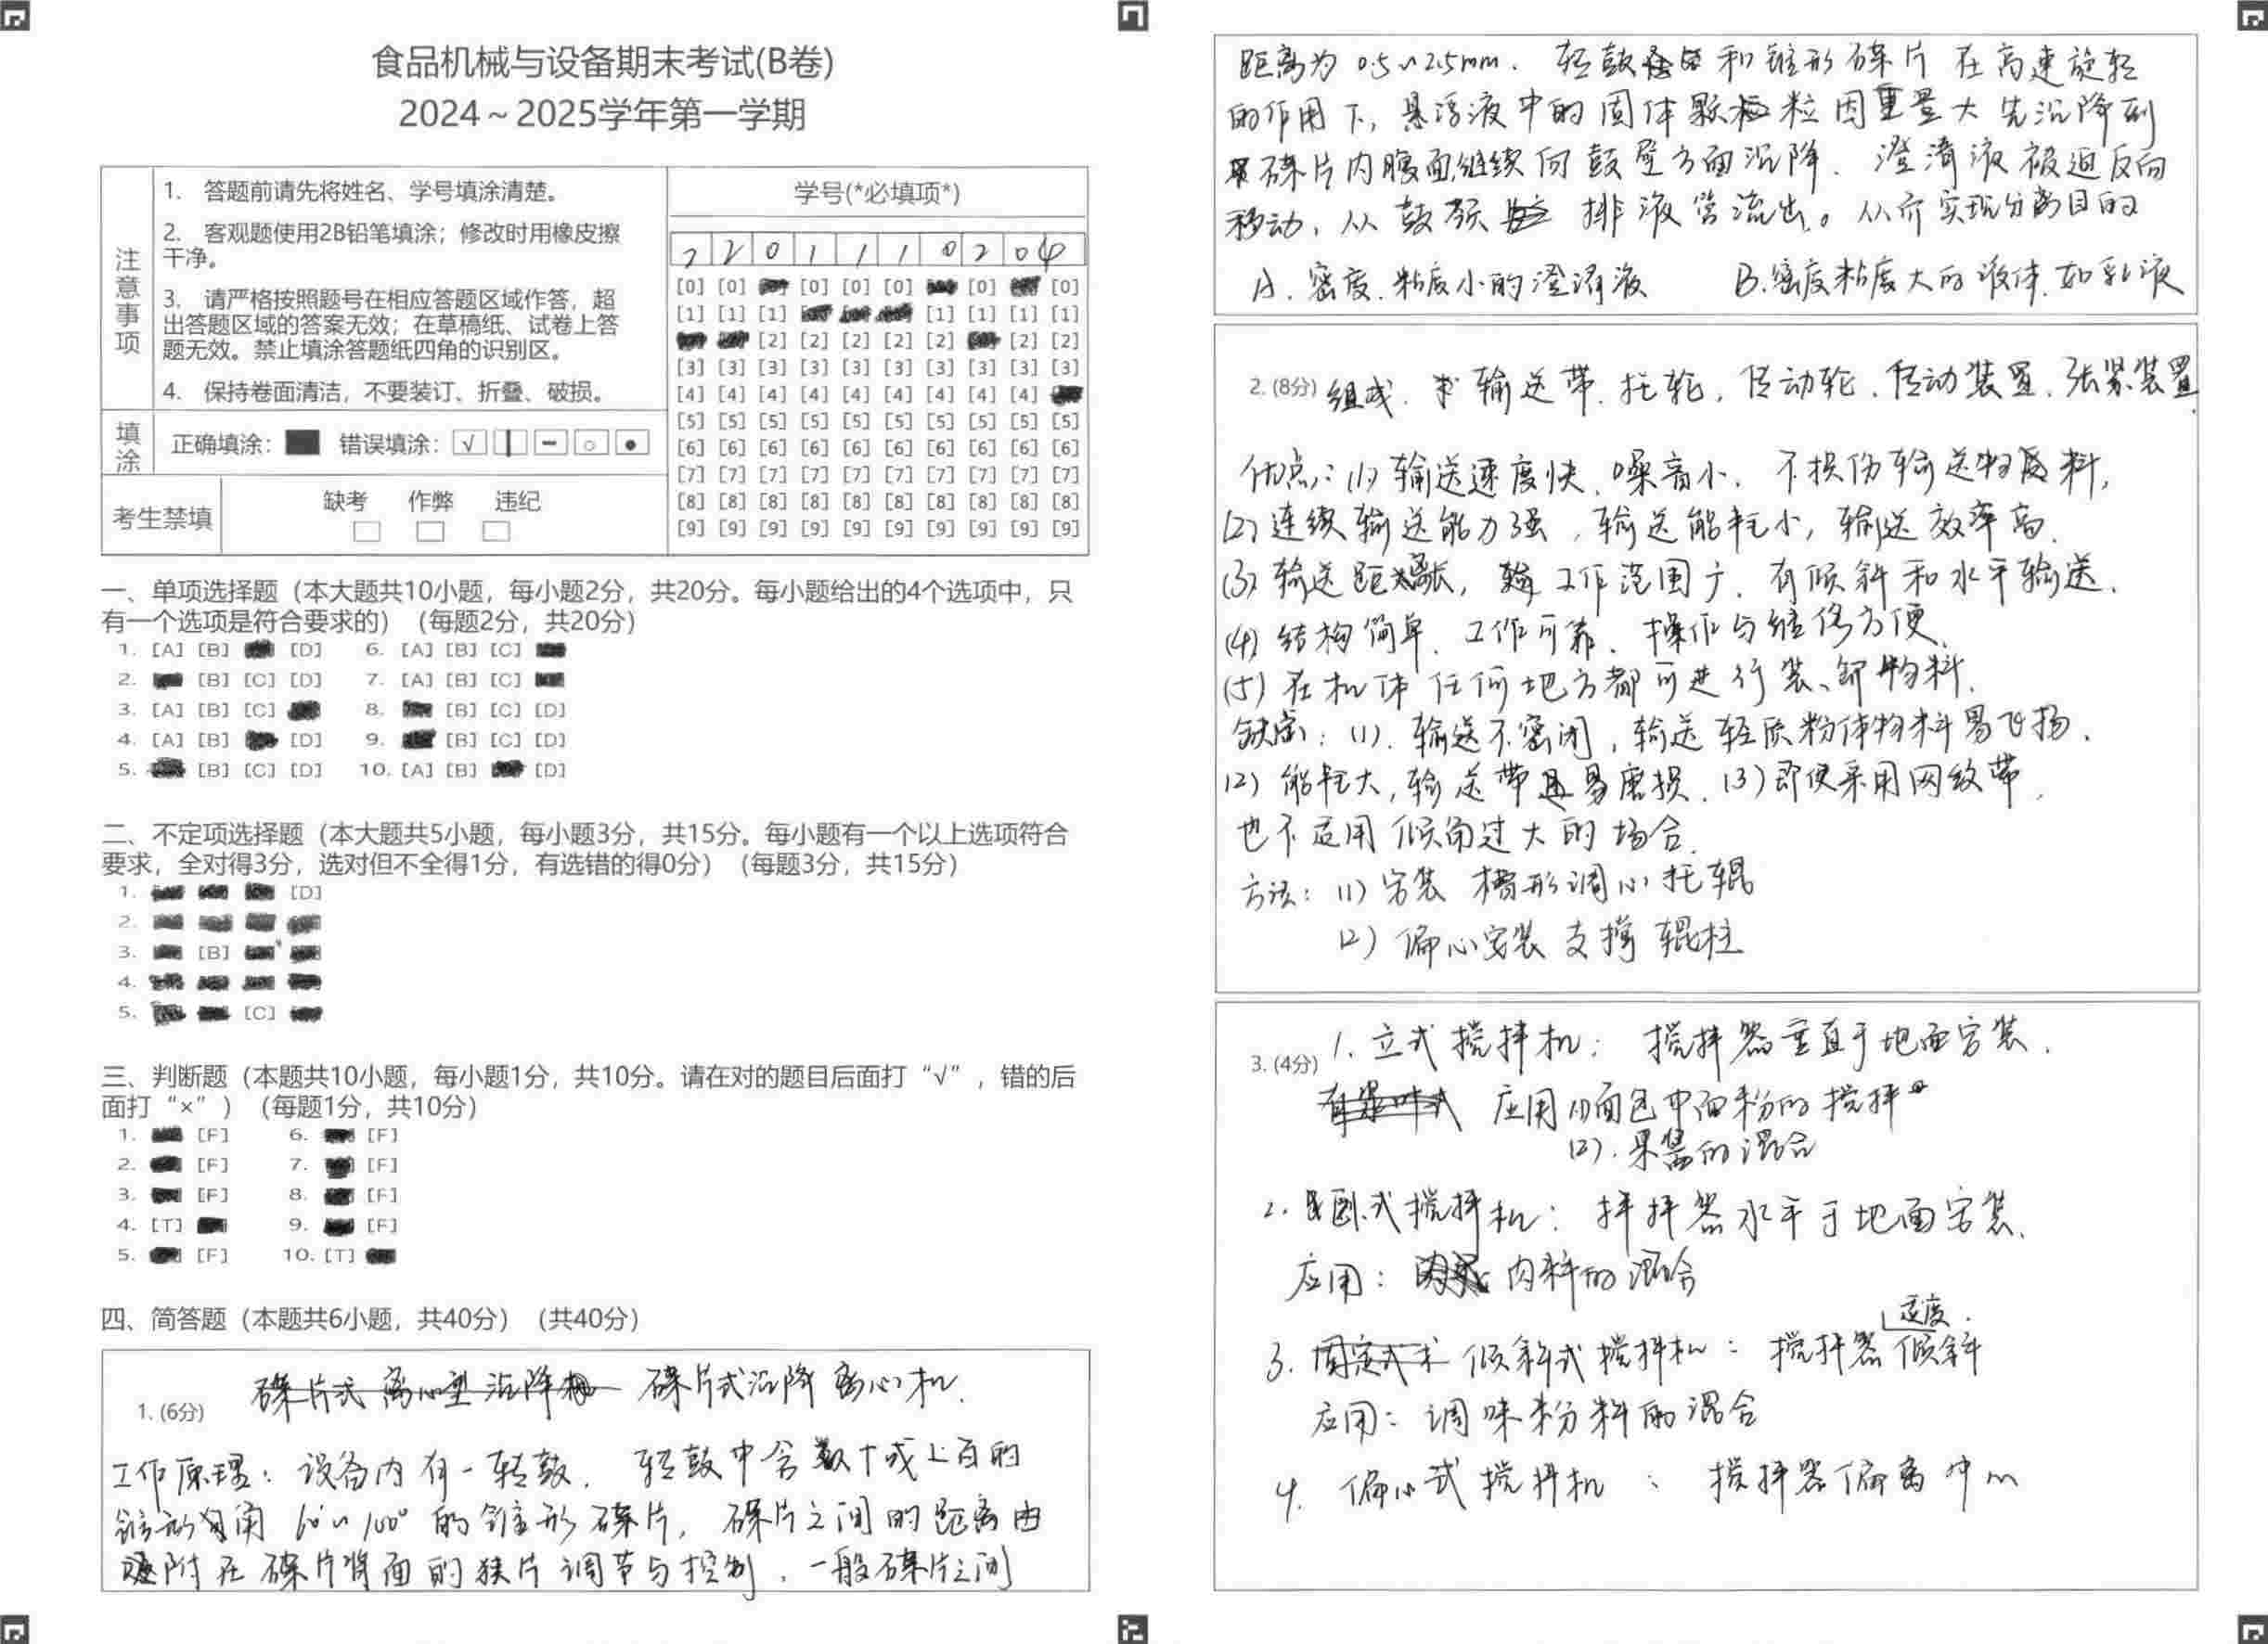 食品机械与设备期末考试(B卷)
2024～2025学年第一学期
注意事项
1. 答题前请先将姓名、学号填涂清楚。
2. 客观题使用2B铅笔填涂；修改时用橡皮擦
干净。
3. 请严格按照题号在相应答题区域作答，超
出答题区域的答案无效；在草稿纸、试卷上答
题无效。禁止填涂答题纸四角的识别区。
4. 保持卷面清洁，不要装订、折叠、破损。
填涂
正确填涂： 错误填涂：
考生禁填
缺考 作弊 违纪
学号(*必填项*)
2 2 0 1 1 1 0 2 0 4
[0] [0] [0] [0] [0] [0] [0]
[1] [1] [1] [1] [1] [1] [1]
[2] [2] [2] [2] [2] [2] [2]
[3] [3] [3] [3] [3] [3] [3] [3] [3] [3]
[4] [4] [4] [4] [4] [4] [4] [4] [4]
[5] [5] [5] [5] [5] [5] [5] [5] [5] [5]
[6] [6] [6] [6] [6] [6] [6] [6] [6] [6]
[7] [7] [7] [7] [7] [7] [7] [7] [7] [7]
[8] [8] [8] [8] [8] [8] [8] [8] [8] [8]
[9] [9] [9] [9] [9] [9] [9] [9] [9] [9]
一、单项选择题（本大题共10小题，每小题2分，共20分。每小题给出的4个选项中，只
有一个选项是符合要求的）（每题2分，共20分）
1. [A] [B] [D] 6. [A] [B] [C]
2. [B] [C] [D] 7. [A] [B] [C]
3. [A] [B] [C] 8. [B] [C] [D]
4. [A] [B] [D] 9. [B] [C] [D]
5. [B] [C] [D] 10. [A] [B] [D]
二、不定项选择题（本大题共5小题，每小题3分，共15分。每小题有一个以上选项符合
要求，全对得3分，选对但不全得1分，有选错的得0分）（每题3分，共15分）
1. [D]
2.
3. [B]
4.
5. [C]
三、判断题（本题共10小题，每小题1分，共10分。请在对的题目后面打“√”，错的后
面打“×”）（每题1分，共10分）
1. [F] 6. [F]
2. [F] 7. [F]
3. [F] 8. [F]
4. [T] 9. [F]
5. [F] 10. [T]
四、简答题（本题共6小题，共40分）（共40分）
1. (6分) 碟片式沉降离心机.
工作原理：设备内有一转鼓. 转鼓中含数十或上百的
锥形角60°~100°的锥形碟片，碟片之间的距离由
附在碟片背面的狭片调节与控制. 一般碟片之间
距离为0.5~2.5mm. 转鼓和锥形碟片在高速旋转
的作用下，悬浮液中的固体颗粒因重量大先沉降到
碟片内腹面,继续向鼓壁方面沉降. 澄清液被迫反向
移动，从鼓颈排液管流出。从而实现分离目的
A. 密度.粘度小的澄清液 B.密度粘度大的液体.如乳液
2. (8分) 组成. 输送带. 托轮, 传动轮. 传动装置. 张紧装置
优点：(1) 输送速度快、噪音小. 不损伤输送物料,
(2) 连续输送能力强，输送能耗小，输送效率高.
(3) 输送距离长，工作范围广. 有倾斜和水平输送.
(4) 结构简单. 工作可靠. 操作与维修方便.
(5) 在机体任何地方都可进行装、卸物料.
缺点：(1). 输送不密闭，输送轻质粉体物料易飞扬.
(2) 能耗大, 输送带易磨损. (3) 即使采用网纹带,
也不适用倾角过大的场合.
方法：(1) 安装槽形调心托辊
(2) 偏心安装支撑辊柱
3. (4分) 1. 立式搅拌机： 搅拌器垂直于地面安装.
应用 (1)面包中面粉的搅拌
(2). 果酱的混合
2. 卧式搅拌机： 拌拌器水平于地面安装.
应用： 肉料的混合
3. 倾斜式搅拌机： 搅拌器适度倾斜
应用：调味粉料的混合
4. 偏心式搅拌机： 搅拌器偏离中心